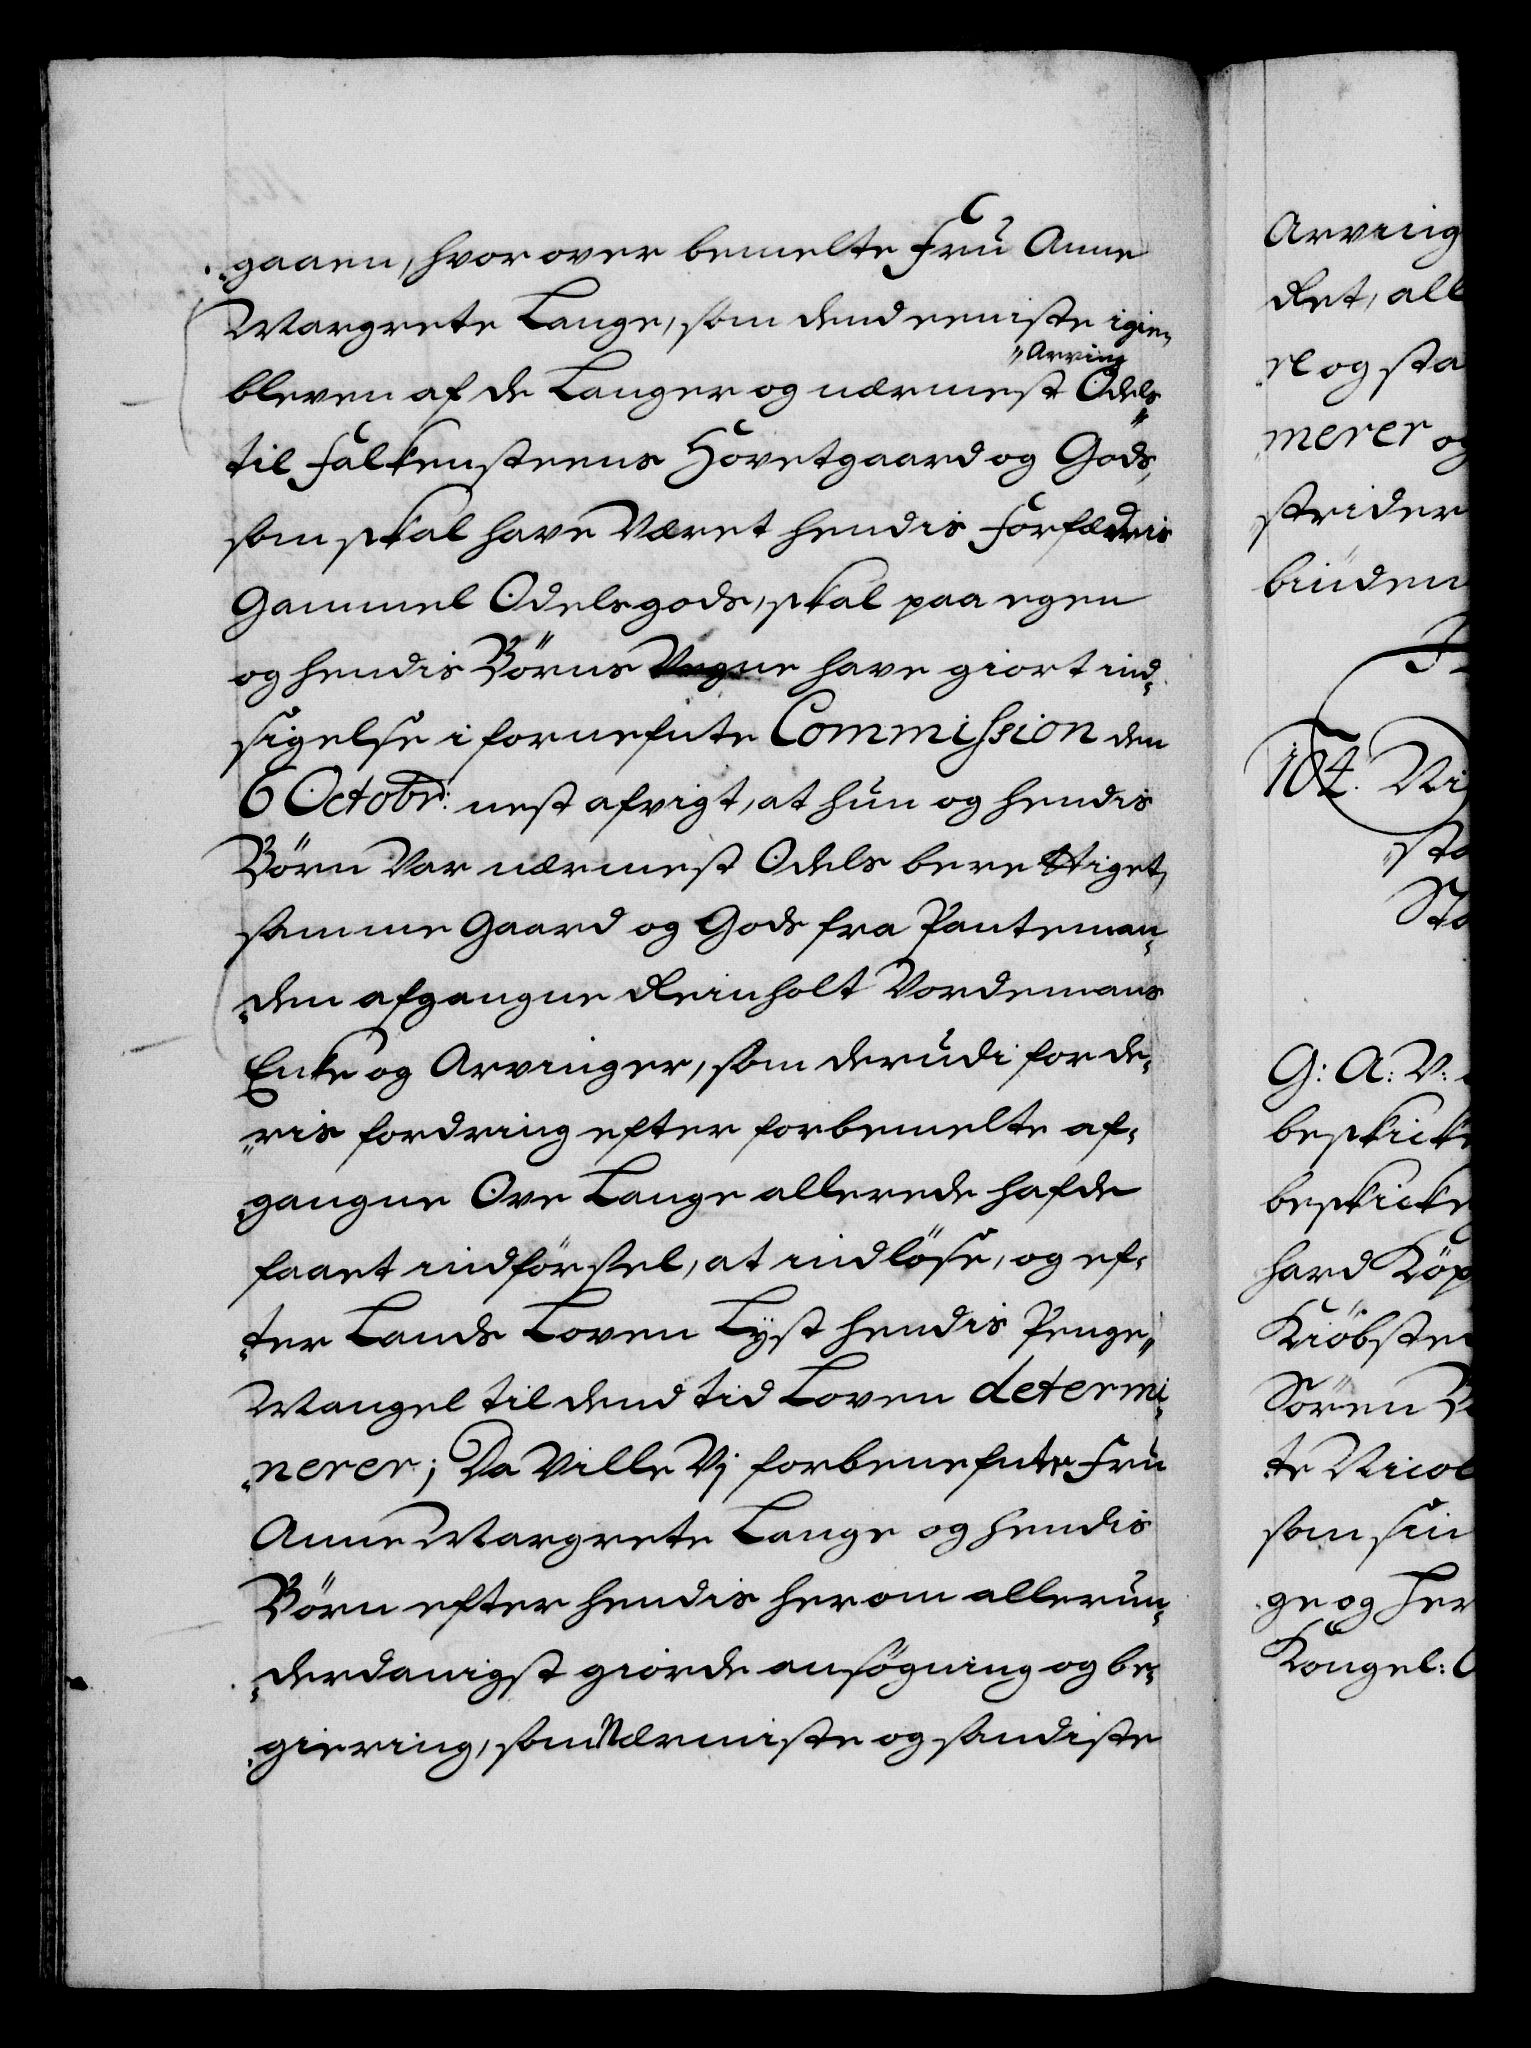 „gaaen, hvor over bemelte Fru Anne
Margrete Lange, som dend eeniste igien¬
bleven af de Langer og nærmest Odels
„Arving
til Falkensteens Hovetgaard og Gods,
som skal have Været hendis Forfædris
Gammel Odelsgods, skal paa egen
og hendis Börns Vegne have giort ind¬
sigelse i fornefnte Commission den
6 Octobr: nest afvigt, at hun og hendis
Börn Var nærmest Odels berettiget,
samme Gaard og Gods fra Panteman¬
„den afgangne Reinholt Vordemans
Enke og Arvinger, som derudi for de¬
„ris fordring efter forbemelte af¬
„gangne Ove Lange allerede hafde
faaet indförsel, at indlöse, og ef¬
„ter Lands Loven Lyst hendis Penge„
Mangel til dend tid Loven determi¬
„nerer; Da Ville Vj forbenefnte Fru
Anne Margrete Lange og hendis
Börn efter hendis herom allerun¬
„derdanigst giorde ansögning og be¬
„giering, som Nærmiste og sandiste
Arving
Ret, all
re og sta
merer og
strider
biuden
104. Ni
sta
Sto
G: A: V:
beskicke
beskicke
hard Köp
Kiöbste
Sören
te Nicol
som sin
ge og Her
Kongel: